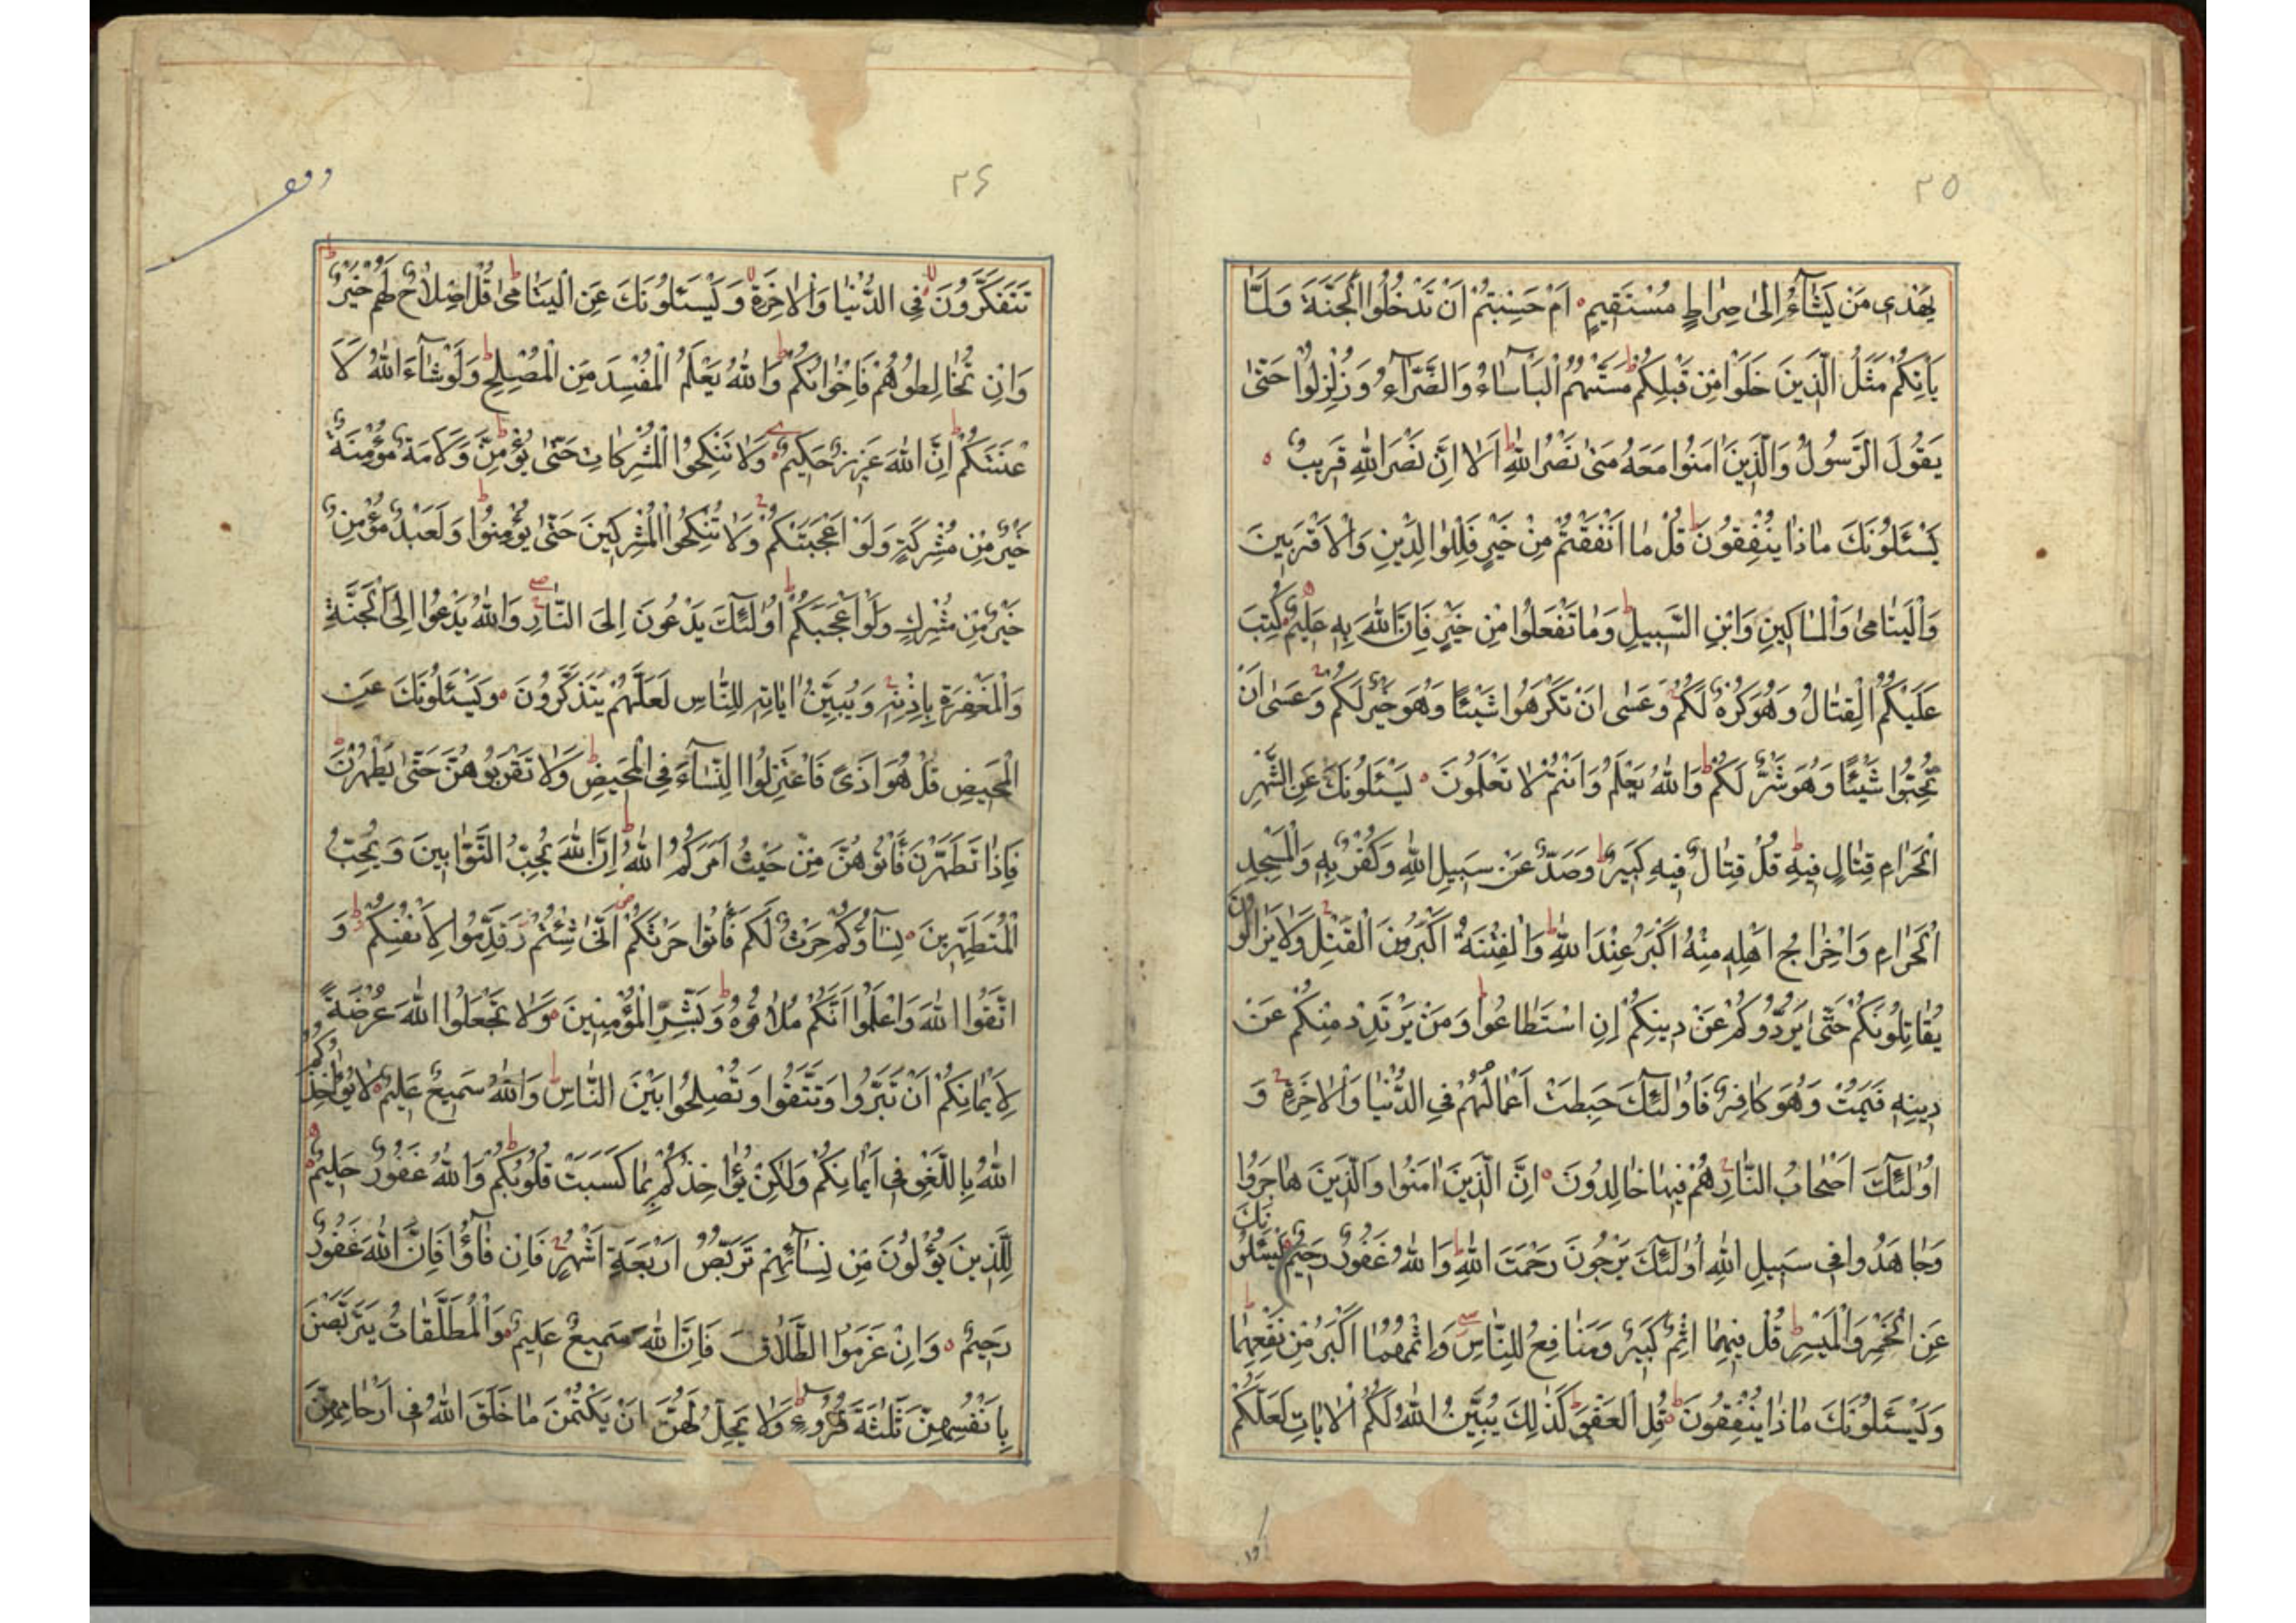 ٢٥
يَهْدِي مَنْ يَشَآءُ اِلىٰ صِرٰاطٍ مُسْتَقِيمٍ ۝ اَمْ حَسِبْتُمْ اَنْ تَدْخُلُوا الْجَنَّةَ وَلَمّٰا
يَأْتِكُمْ مَثَلُ الَّذِينَ خَلَوْا مِنْ قَبْلِكُمْ ط مَسَّتْهُمُ الْبَأْسٰآءُ وَالضَّرّٰآءُ وَزُلْزِلُوا حَتّىٰ
يَقُولَ الرَّسُولُ وَالَّذِينَ اٰمَنُوا مَعَهُ مَتىٰ نَصْرُ اللّٰهِ ط اَلٰا اِنَّ نَصْرَ اللّٰهِ قَرِيبٌ ۝
يَسْئَلُونَكَ مٰاذٰا يُنْفِقُونَ ط قُلْ مٰا اَنْفَقْتُمْ مِنْ خَيْرٍ فَلِلْوٰالِدَيْنِ وَالْاَقْرَبِينَ
وَالْيَتٰامىٰ وَالْمَسٰاكِينِ وَابْنِ السَّبِيلِ ط وَمٰا تَفْعَلُوا مِنْ خَيْرٍ فَاِنَّ اللّٰهَ بِهِ عَلِيمٌ ۝ كُتِبَ
عَلَيْكُمُ الْقِتٰالُ وَهُوَ كُرْهٌ لَكُمْ ج وَعَسىٰ اَنْ تَكْرَهُوا شَيْئًا وَهُوَ خَيْرٌ لَكُمْ ج وَعَسىٰ اَنْ
تُحِبُّوا شَيْئًا وَهُوَ شَرٌّ لَكُمْ ط وَاللّٰهُ يَعْلَمُ وَاَنْتُمْ لٰا تَعْلَمُونَ ۝ يَسْئَلُونَكَ عَنِ الشَّهْرِ
الْحَرٰامِ قِتٰالٍ فِيهِ ط قُلْ قِتٰالٌ فِيهِ كَبِيرٌ ط وَصَدٌّ عَنْ سَبِيلِ اللّٰهِ وَكُفْرٌ بِهِ وَالْمَسْجِدِ
الْحَرٰامِ وَاِخْرٰاجُ اَهْلِهِ مِنْهُ اَكْبَرُ عِنْدَ اللّٰهِ ط وَالْفِتْنَةُ اَكْبَرُ مِنَ الْقَتْلِ ج وَلٰا يَزٰالُونَ
يُقٰاتِلُونَكُمْ حَتّىٰ يَرُدُّوكُمْ عَنْ دِينِكُمْ اِنِ اسْتَطٰاعُوا ط وَمَنْ يَرْتَدِدْ مِنْكُمْ عَنْ
دِينِهِ فَيَمُتْ وَهُوَ كٰافِرٌ فَاُولٰئِكَ حَبِطَتْ اَعْمٰالُهُمْ فِي الدُّنْيٰا وَالْاٰخِرَةِ ج وَ
اُولٰئِكَ اَصْحٰابُ النّٰارِ ج هُمْ فِيهٰا خٰالِدُونَ ۝ اِنَّ الَّذِينَ اٰمَنُوا وَالَّذِينَ هٰاجَرُوا
وَجٰاهَدُوا فِي سَبِيلِ اللّٰهِ اُولٰئِكَ يَرْجُونَ رَحْمَتَ اللّٰهِ ط وَاللّٰهُ غَفُورٌ رَحِيمٌ ۝ يَسْئَلُونَكَ
عَنِ الْخَمْرِ وَالْمَيْسِرِ ط قُلْ فِيهِمٰا اِثْمٌ كَبِيرٌ وَمَنٰافِعُ لِلنّٰاسِ وَاِثْمُهُمٰا اَكْبَرُ مِنْ نَفْعِهِمٰا ط
وَيَسْئَلُونَكَ مٰاذٰا يُنْفِقُونَ ط قُلِ الْعَفْوَ ط كَذٰلِكَ يُبَيِّنُ اللّٰهُ لَكُمُ الْاٰيٰاتِ لَعَلَّكُمْ
٢٦
تَتَفَكَّرُونَ لا فِي الدُّنْيٰا وَالْاٰخِرَةِ لا وَيَسْئَلُونَكَ عَنِ الْيَتٰامىٰ ط قُلْ اِصْلٰاحٌ لَهُمْ خَيْرٌ ط
وَاِنْ تُخٰالِطُوهُمْ فَاِخْوٰانُكُمْ ط وَاللّٰهُ يَعْلَمُ الْمُفْسِدَ مِنَ الْمُصْلِحِ ط وَلَوْ شٰآءَ اللّٰهُ لَاَ
عْنَتَكُمْ ط اِنَّ اللّٰهَ عَزِيزٌ حَكِيمٌ ۝ وَلٰا تَنْكِحُوا الْمُشْرِكٰاتِ حَتّىٰ يُؤْمِنَّ ط وَلَاَمَةٌ مُؤْمِنَةٌ
خَيْرٌ مِنْ مُشْرِكَةٍ وَلَوْ اَعْجَبَتْكُمْ ج وَلٰا تُنْكِحُوا الْمُشْرِكِينَ حَتّىٰ يُؤْمِنُوا ط وَلَعَبْدٌ مُؤْمِنٌ
خَيْرٌ مِنْ مُشْرِكٍ وَلَوْ اَعْجَبَكُمْ ط اُولٰئِكَ يَدْعُونَ اِلَى النّٰارِ وَاللّٰهُ يَدْعُوا اِلَى الْجَنَّةِ
وَالْمَغْفِرَةِ بِاِذْنِهِ ج وَيُبَيِّنُ اٰيٰاتِهِ لِلنّٰاسِ لَعَلَّهُمْ يَتَذَكَّرُونَ ۝ وَيَسْئَلُونَكَ عَنِ
الْمَحِيضِ قُلْ هُوَ اَذًى فَاعْتَزِلُوا النِّسٰآءَ فِي الْمَحِيضِ ط وَلٰا تَقْرَبُوهُنَّ حَتّىٰ يَطْهُرْنَ
فَاِذٰا تَطَهَّرْنَ فَأْتُوهُنَّ مِنْ حَيْثُ اَمَرَكُمُ اللّٰهُ ط اِنَّ اللّٰهَ يُحِبُّ التَّوّٰابِينَ وَيُحِبُّ
الْمُتَطَهِّرِينَ ۝ نِسٰآؤُكُمْ حَرْثٌ لَكُمْ فَأْتُوا حَرْثَكُمْ اَنّىٰ شِئْتُمْ وَقَدِّمُوا لِاَنْفُسِكُمْ ط وَ
اتَّقُوا اللّٰهَ وَاعْلَمُوا اَنَّكُمْ مُلٰاقُوهُ ط وَبَشِّرِ الْمُؤْمِنِينَ ۝ وَلٰا تَجْعَلُوا اللّٰهَ عُرْضَةً
لِاَيْمٰانِكُمْ اَنْ تَبَرُّوا وَتَتَّقُوا وَتُصْلِحُوا بَيْنَ النّٰاسِ ط وَاللّٰهُ سَمِيعٌ عَلِيمٌ ۝ لٰا يُؤٰاخِذُكُمُ
اللّٰهُ بِاللَّغْوِ فِي اَيْمٰانِكُمْ وَلٰكِنْ يُؤٰاخِذُكُمْ بِمٰا كَسَبَتْ قُلُوبُكُمْ ط وَاللّٰهُ غَفُورٌ حَلِيمٌ ۝
لِلَّذِينَ يُؤْلُونَ مِنْ نِسٰآئِهِمْ تَرَبُّصُ اَرْبَعَةِ اَشْهُرٍ ج فَاِنْ فٰآؤُا فَاِنَّ اللّٰهَ غَفُورٌ
رَحِيمٌ ۝ وَاِنْ عَزَمُوا الطَّلٰاقَ فَاِنَّ اللّٰهَ سَمِيعٌ عَلِيمٌ ۝ وَالْمُطَلَّقٰاتُ يَتَرَبَّصْنَ
بِاَنْفُسِهِنَّ ثَلٰثَةَ قُرُوءٍ ط وَلٰا يَحِلُّ لَهُنَّ اَنْ يَكْتُمْنَ مٰا خَلَقَ اللّٰهُ فِي اَرْحٰامِهِنَّ